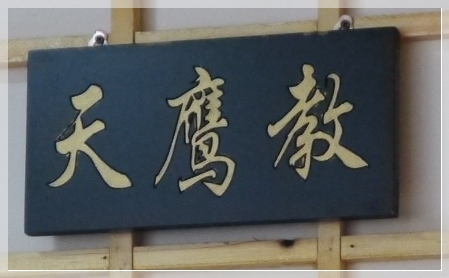 天鷹教